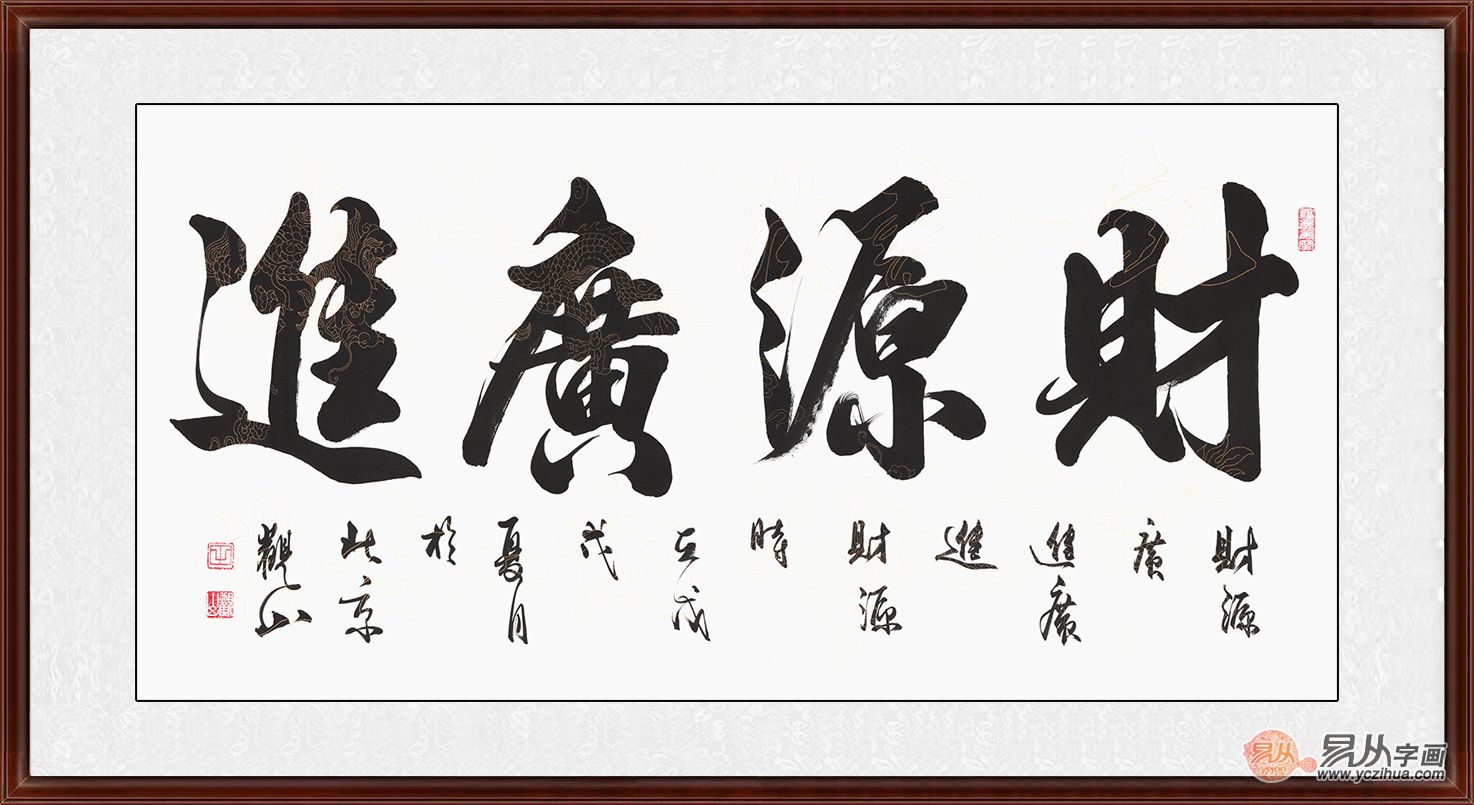 財源廣進
財源
廣
進廣
進
財源
時
在戊
戌
夏月
於
北京
觀山
易从
易从字画
www.yczihua.com